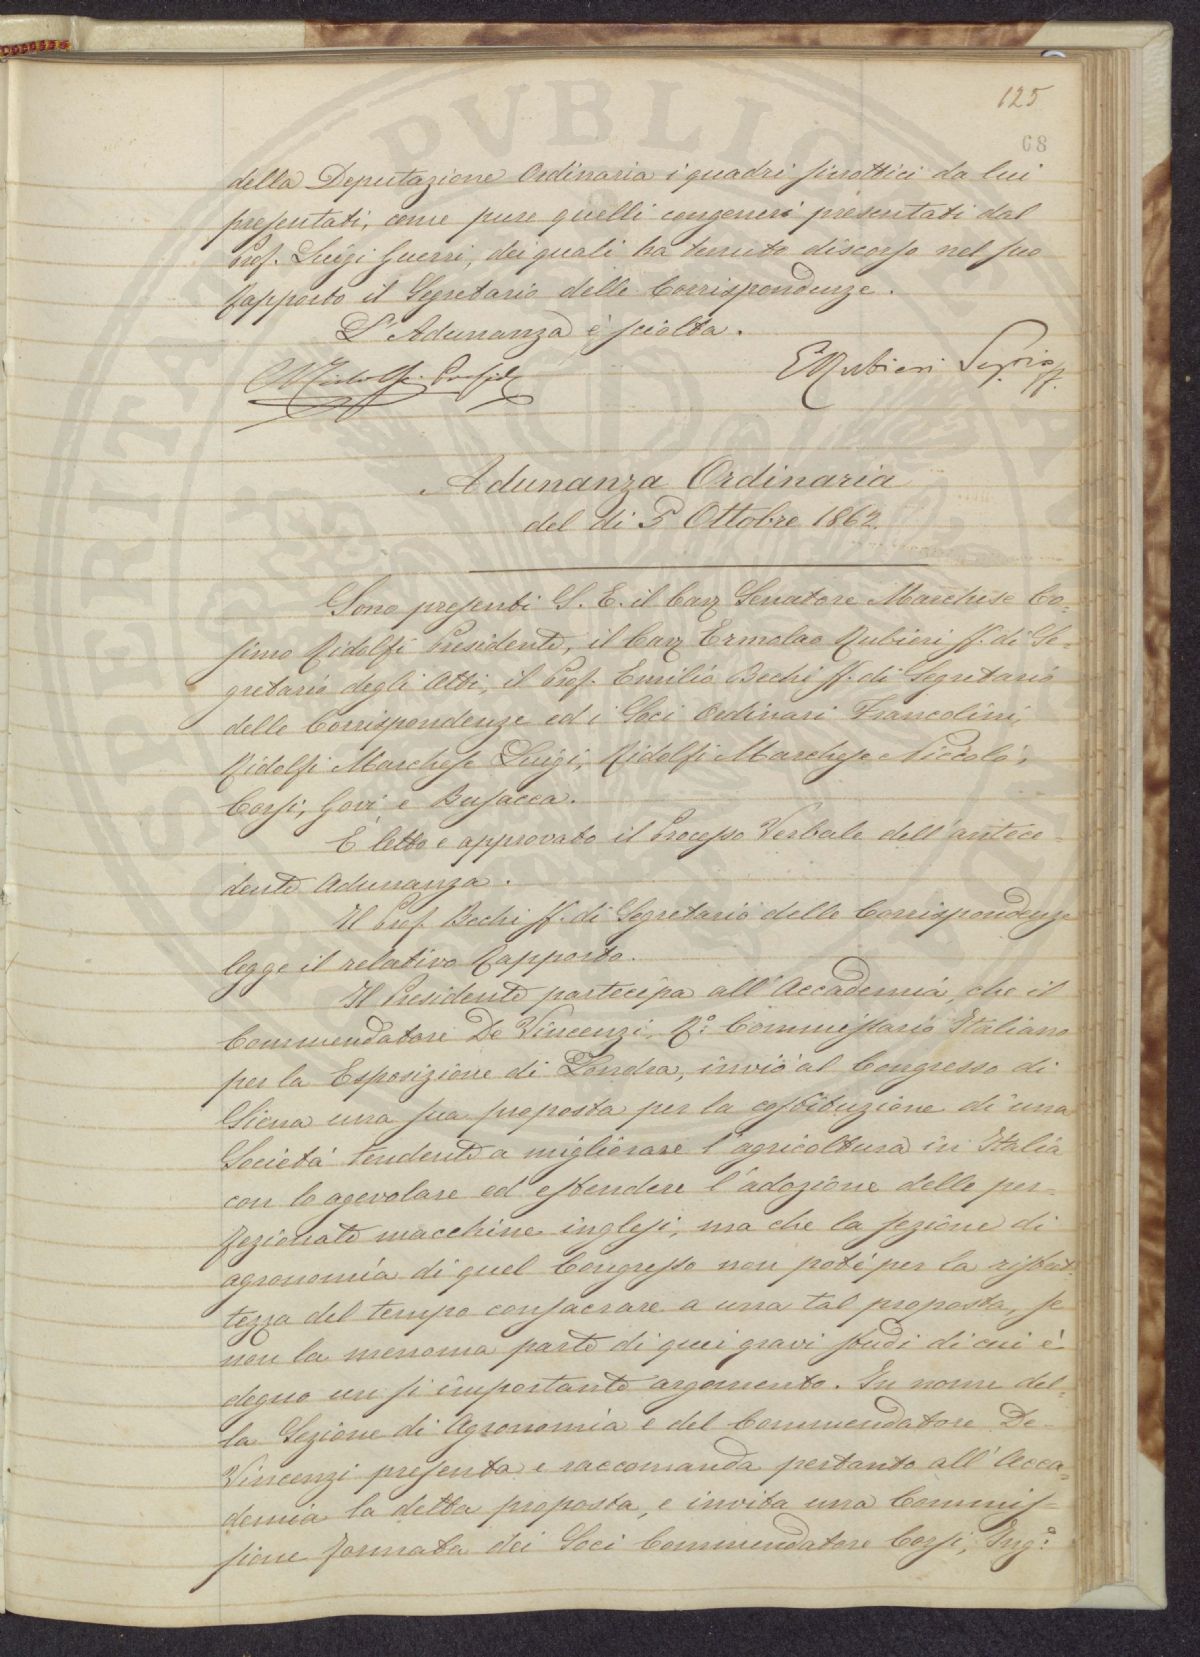 125
68
della Deputazione Ordinaria i quadri sinottici da lui
presentati, come pure quelli congeneri presentati dal
Prof. Luigi Guerri, dei quali ha tenuto discorso nel suo
rapporto il Segretario delle Corrispondenze.
L'Adunanza è sciolta.
CRidolfi Presid.
ERubieri Segrio ff.
Adunanza Ordinaria
del dì 5 Ottobre 1862.
Sono presenti S. E. il Cav Senatore Marchese Co=
simo Ridolfi Presidente, il Cav Ermolao Rubieri ff. di Se=
gretario degli Atti, il Prof. Emilio Bechi ff. di Segretario
delle Corrispondenze ed i Soci Ordinari Francolini,
Ridolfi Marchese Luigi, Ridolfi Marchese Niccolò,
Corsi, Govi e Busacca.
È letto e approvato il Processo Verbale dell'antece=
dente Adunanza.
Il Prof. Bechi ff. di Segretario delle Corrispondenze
legge il relativo Rapporto.
Il Presidente partecipa all'Accademia, che il
Commendatore De Vincenzi, R.º Commissario Italiano
per la Esposizione di Londra, inviò al Congresso di
Siena una sua proposta per la costituzione di una
Società tendente a migliorare l'agricoltura in Italia
con lo agevolare ed estendere l'adozione delle per=
fezionate macchine inglesi, ma che la sezione di
agronomia di quel Congresso non poté per la ristret=
tezza del tempo consacrare a una tal proposta, se
non la menoma parte di quei gravi studi di cui è
degno un sì importante argomento. In nome del=
la Sezione di Agronomia e del Commendatore De
Vincenzi presenta e raccomanda pertanto all'Acca=
demia la detta proposta, e invita una Commis=
sione formata dei Soci Commendatore Corsi, Ing.º